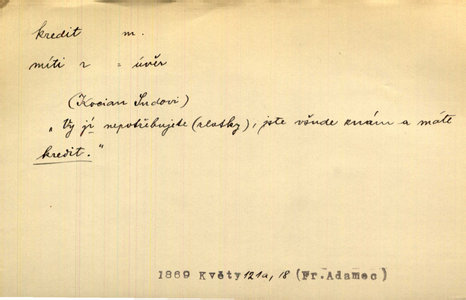 kredit m.
míti k = úvěr
(Kocian Sudovi)
„Vy jí nepotřebujete (zlatky), jste všude znám a máte
kredit.“
1869 Květy 121a, 18 (Fr. Adamec)